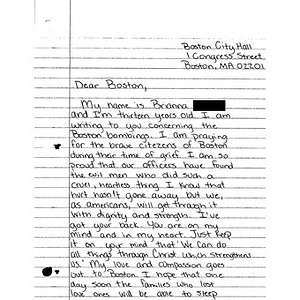 Boston City Hall
1 Congress Street
Boston, MA 02201
Dear Boston,
My name is Brianna
and I'm thirteen years old. I am
writing to you concerning the
Boston bombings. I am praying
for the brave citezens of Boston
during their time of grief. I am so
proud that our officers have found
the evil men who did such a
cruel, heartless thing. I know that
hurt hasn't gone away but we,
as americans, will get through it
with dignity and strength. I've
got your back. You are on my
mind and in my heart. Just keep
it on your mind that "We can do
all things through Christ which strengthens
us." My love and compassion goes
out to Boston. I hope that one
day soon the families who lost
love ones will be able to sleep